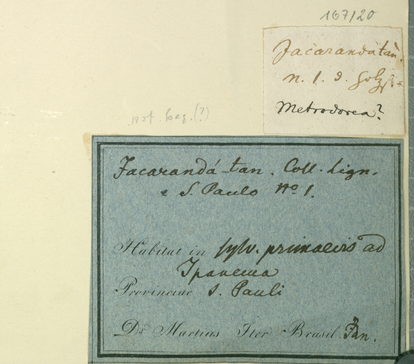 167/20
Jacaranda tan.
n. 1. d.
Metrodorea?
(?)
Jacarandá-tan. Coll. Lign.
e S. Paulo No 1.
Habitat in sylv. primaevis ad
Ipanema
Provinciae S. Pauli
Dr. Martius Iter Brasil.